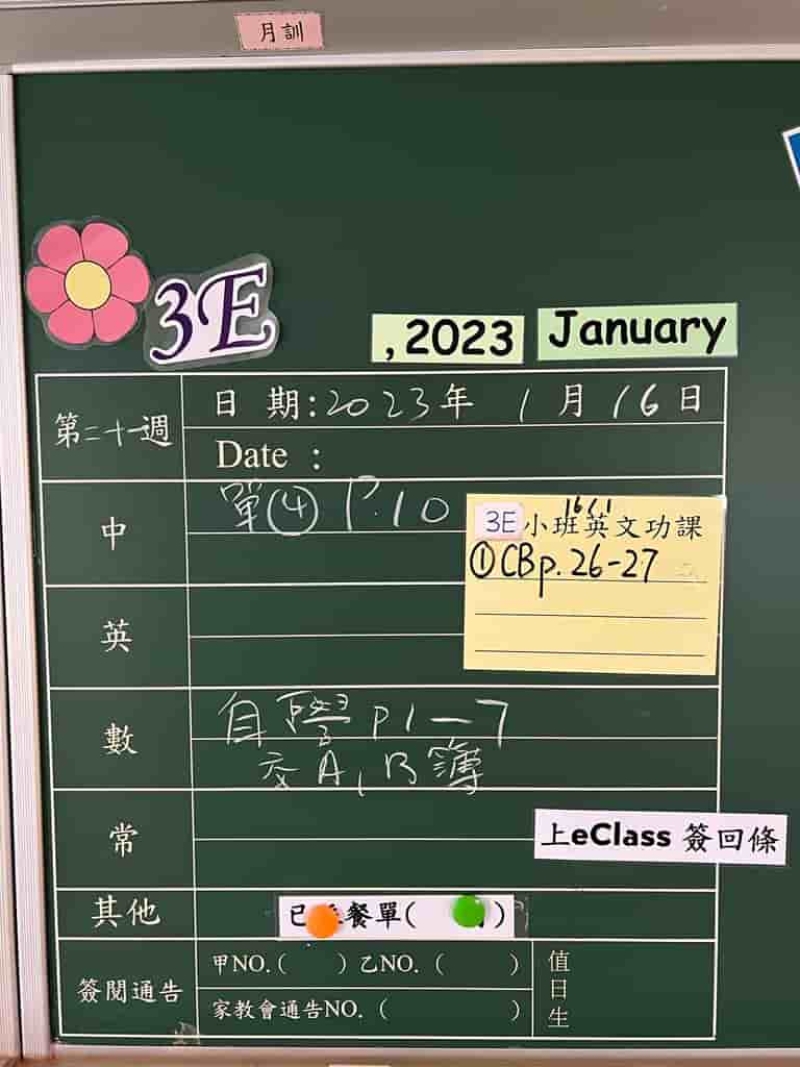 月訓
3E
, 2023 January
第二十一週
日 期:2023年 1月16日
Date :
中
單④ P.10
16/1
3E 小班英文功課
①CBp.26-27
英
數
自學 P1-7
交A,B簿
常
上eClass 簽回條
其他
餐單( )
簽閱通告
甲NO.( ) 乙NO.( )
家教會通告NO.( )
值日生